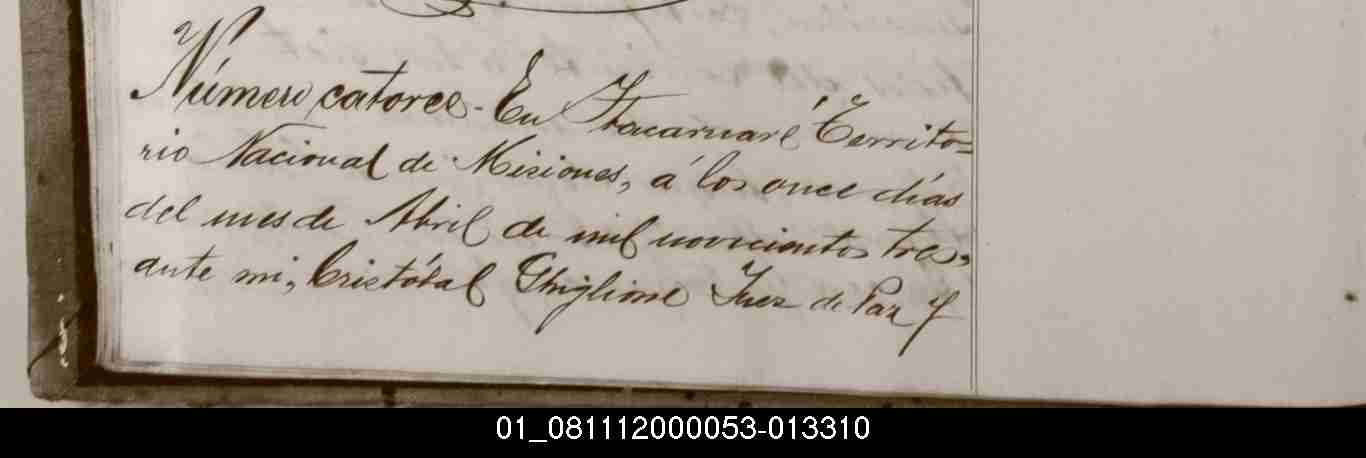 Número catorce - En Itacaruaré Territo=
rio Nacional de Misiones, á los once días
del mes de Abril de mil novecientos tres,
ante mi, Cristóbal Ghiglione Juez de Paz y
01_081112000053-013310